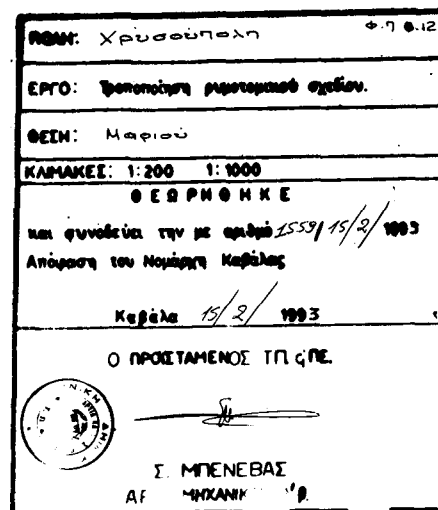 ΠΟΛΗ: Χρυσούπολη Φ.7 Θ.12
ΕΡΓΟ: Τροποποίηση ρυμοτομικού σχεδίου.
ΘΕΣΗ: Μαριού
ΚΛΙΜΑΚΕΣ: 1:200 1:1000
ΘΕΩΡΗΘΗΚΕ
και συνοδεύει την με αριθμό 1559/15/2/1993
Απόφαση του Νομάρχη Καβάλας
Καβάλα 15/2/1993
Ο ΠΡΟΪΣΤΑΜΕΝΟΣ ΤΠ ςΠΕ.
Σ. ΜΠΕΝΕΒΑΣ
ΜΗΧΑΝΙΚ